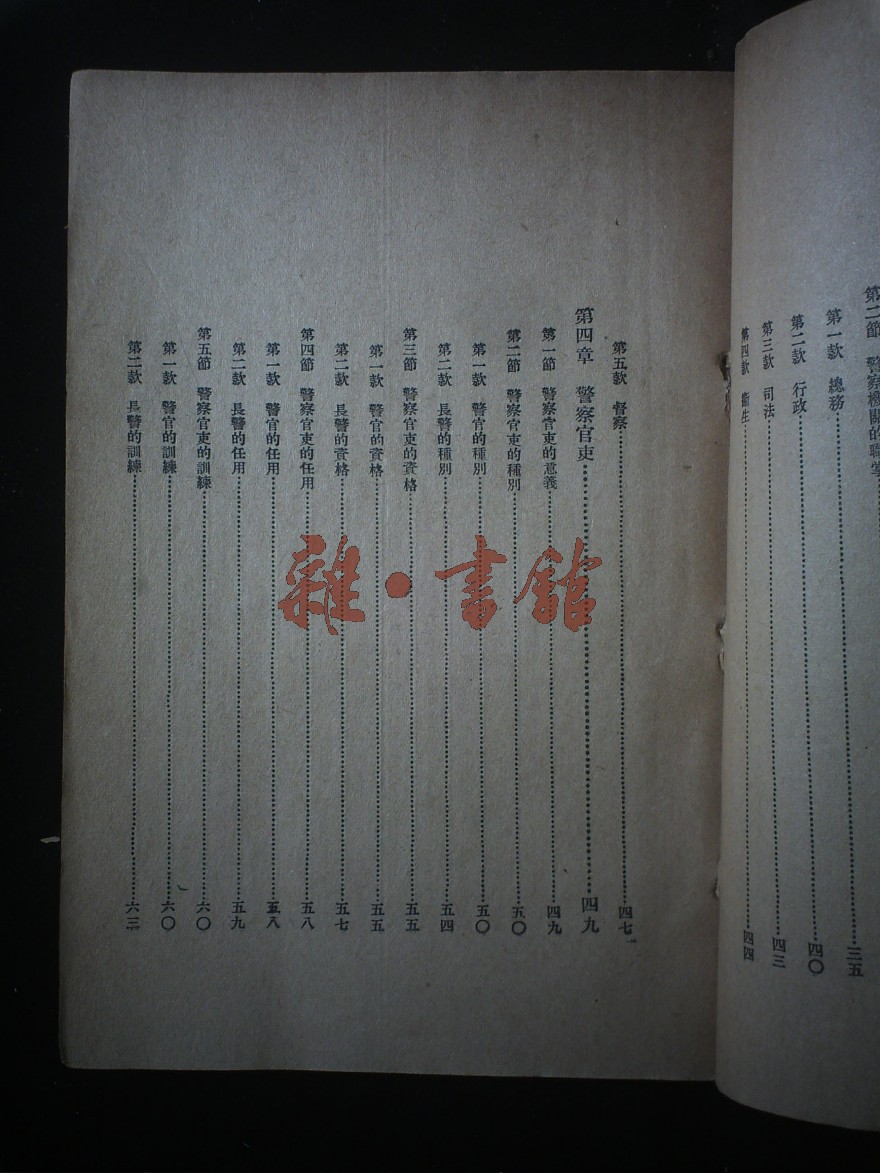 第二節 警察機關的職掌
第一款 總務……三五
第二款 行政……四〇
第三款 司法……四三
第四款 衞生……四四
第五款 督察……四七
第四章 警察官吏……四九
第一節 警察官吏的意義……四九
第二節 警察官吏的種別……五〇
第一款 警官的種別……五〇
第二款 長警的種別……五四
第三節 警察官吏的資格……五五
第一款 警官的資格……五五
第二款 長警的資格……五七
第四節 警察官吏的任用……五八
第一款 警官的任用……五八
第二款 長警的任用……五九
第五節 警察官吏的訓練……六〇
第一款 警官的訓練……六〇
第二款 長警的訓練……六三
雜·書館